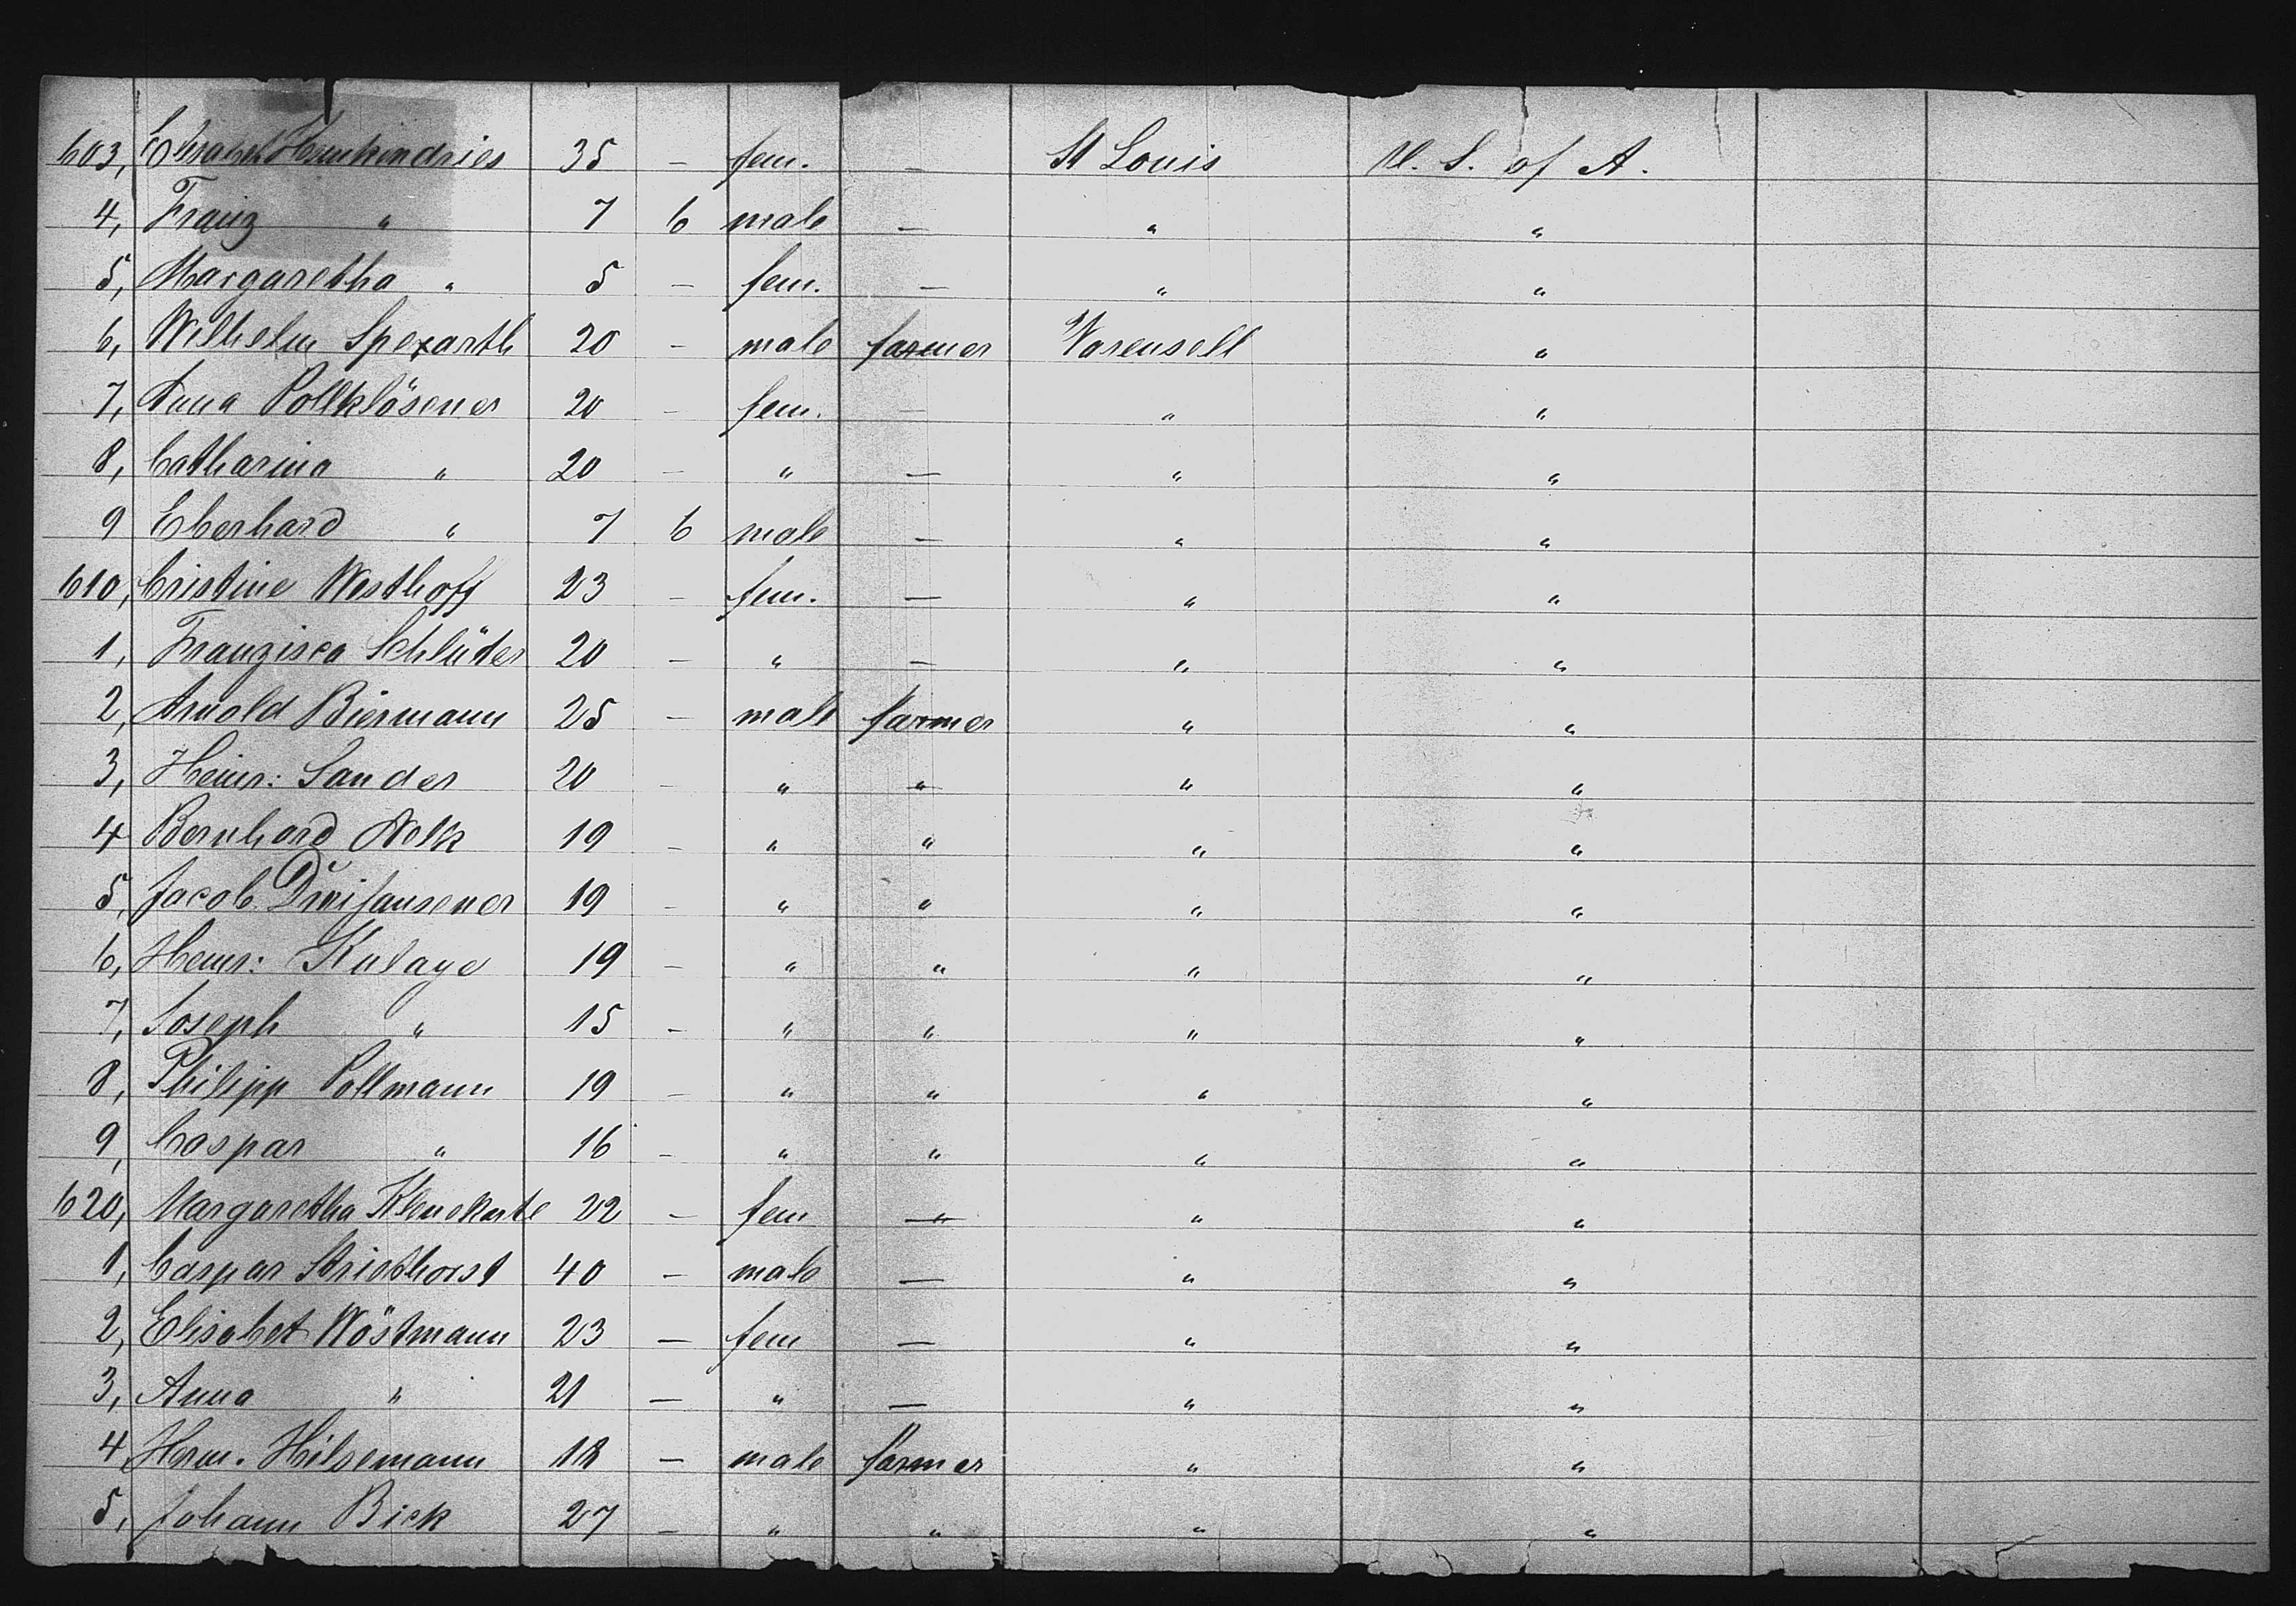 603, Elisabeth Hemkendries 35 – fem. – St Louis U. S. of A.
4, Franz " 7 6 male – " "
5, Margaretha " 5 – fem. – " "
6, Wilhelm Spexarth 20 – male farmer Varensell "
7, Anna Pollklösener 20 – fem. – " "
8, Catharina " 20 – " – " "
9 Eberhard " 7 6 male – " "
610, Cristine Westhoff 23 – fem. – " "
1, Franzisca Schlüter 20 – " – " "
2, Arnold Biermann 25 – male farmer " "
3, Heinr: Sander 20 – " " " "
4 Bernhard Nolk 19 – " " " "
5, Jacob 19 – " " " "
6, Heinr: Kulage 19 – " " " "
7, Joseph " 15 – " " " "
8, Philipp Pollmann 19 – " " " "
9, Caspar " 16 – " " " "
620, Margaretha 22 – fem – " "
1, Caspar Striethorst 40 – male – " "
2, Elisabet Wöstmann 23 – fem – " "
3, Anna " 21 – " – " "
4, Herm. Hilsemann 18 – male farmer " "
5, Johann Bick 27 – " " " "